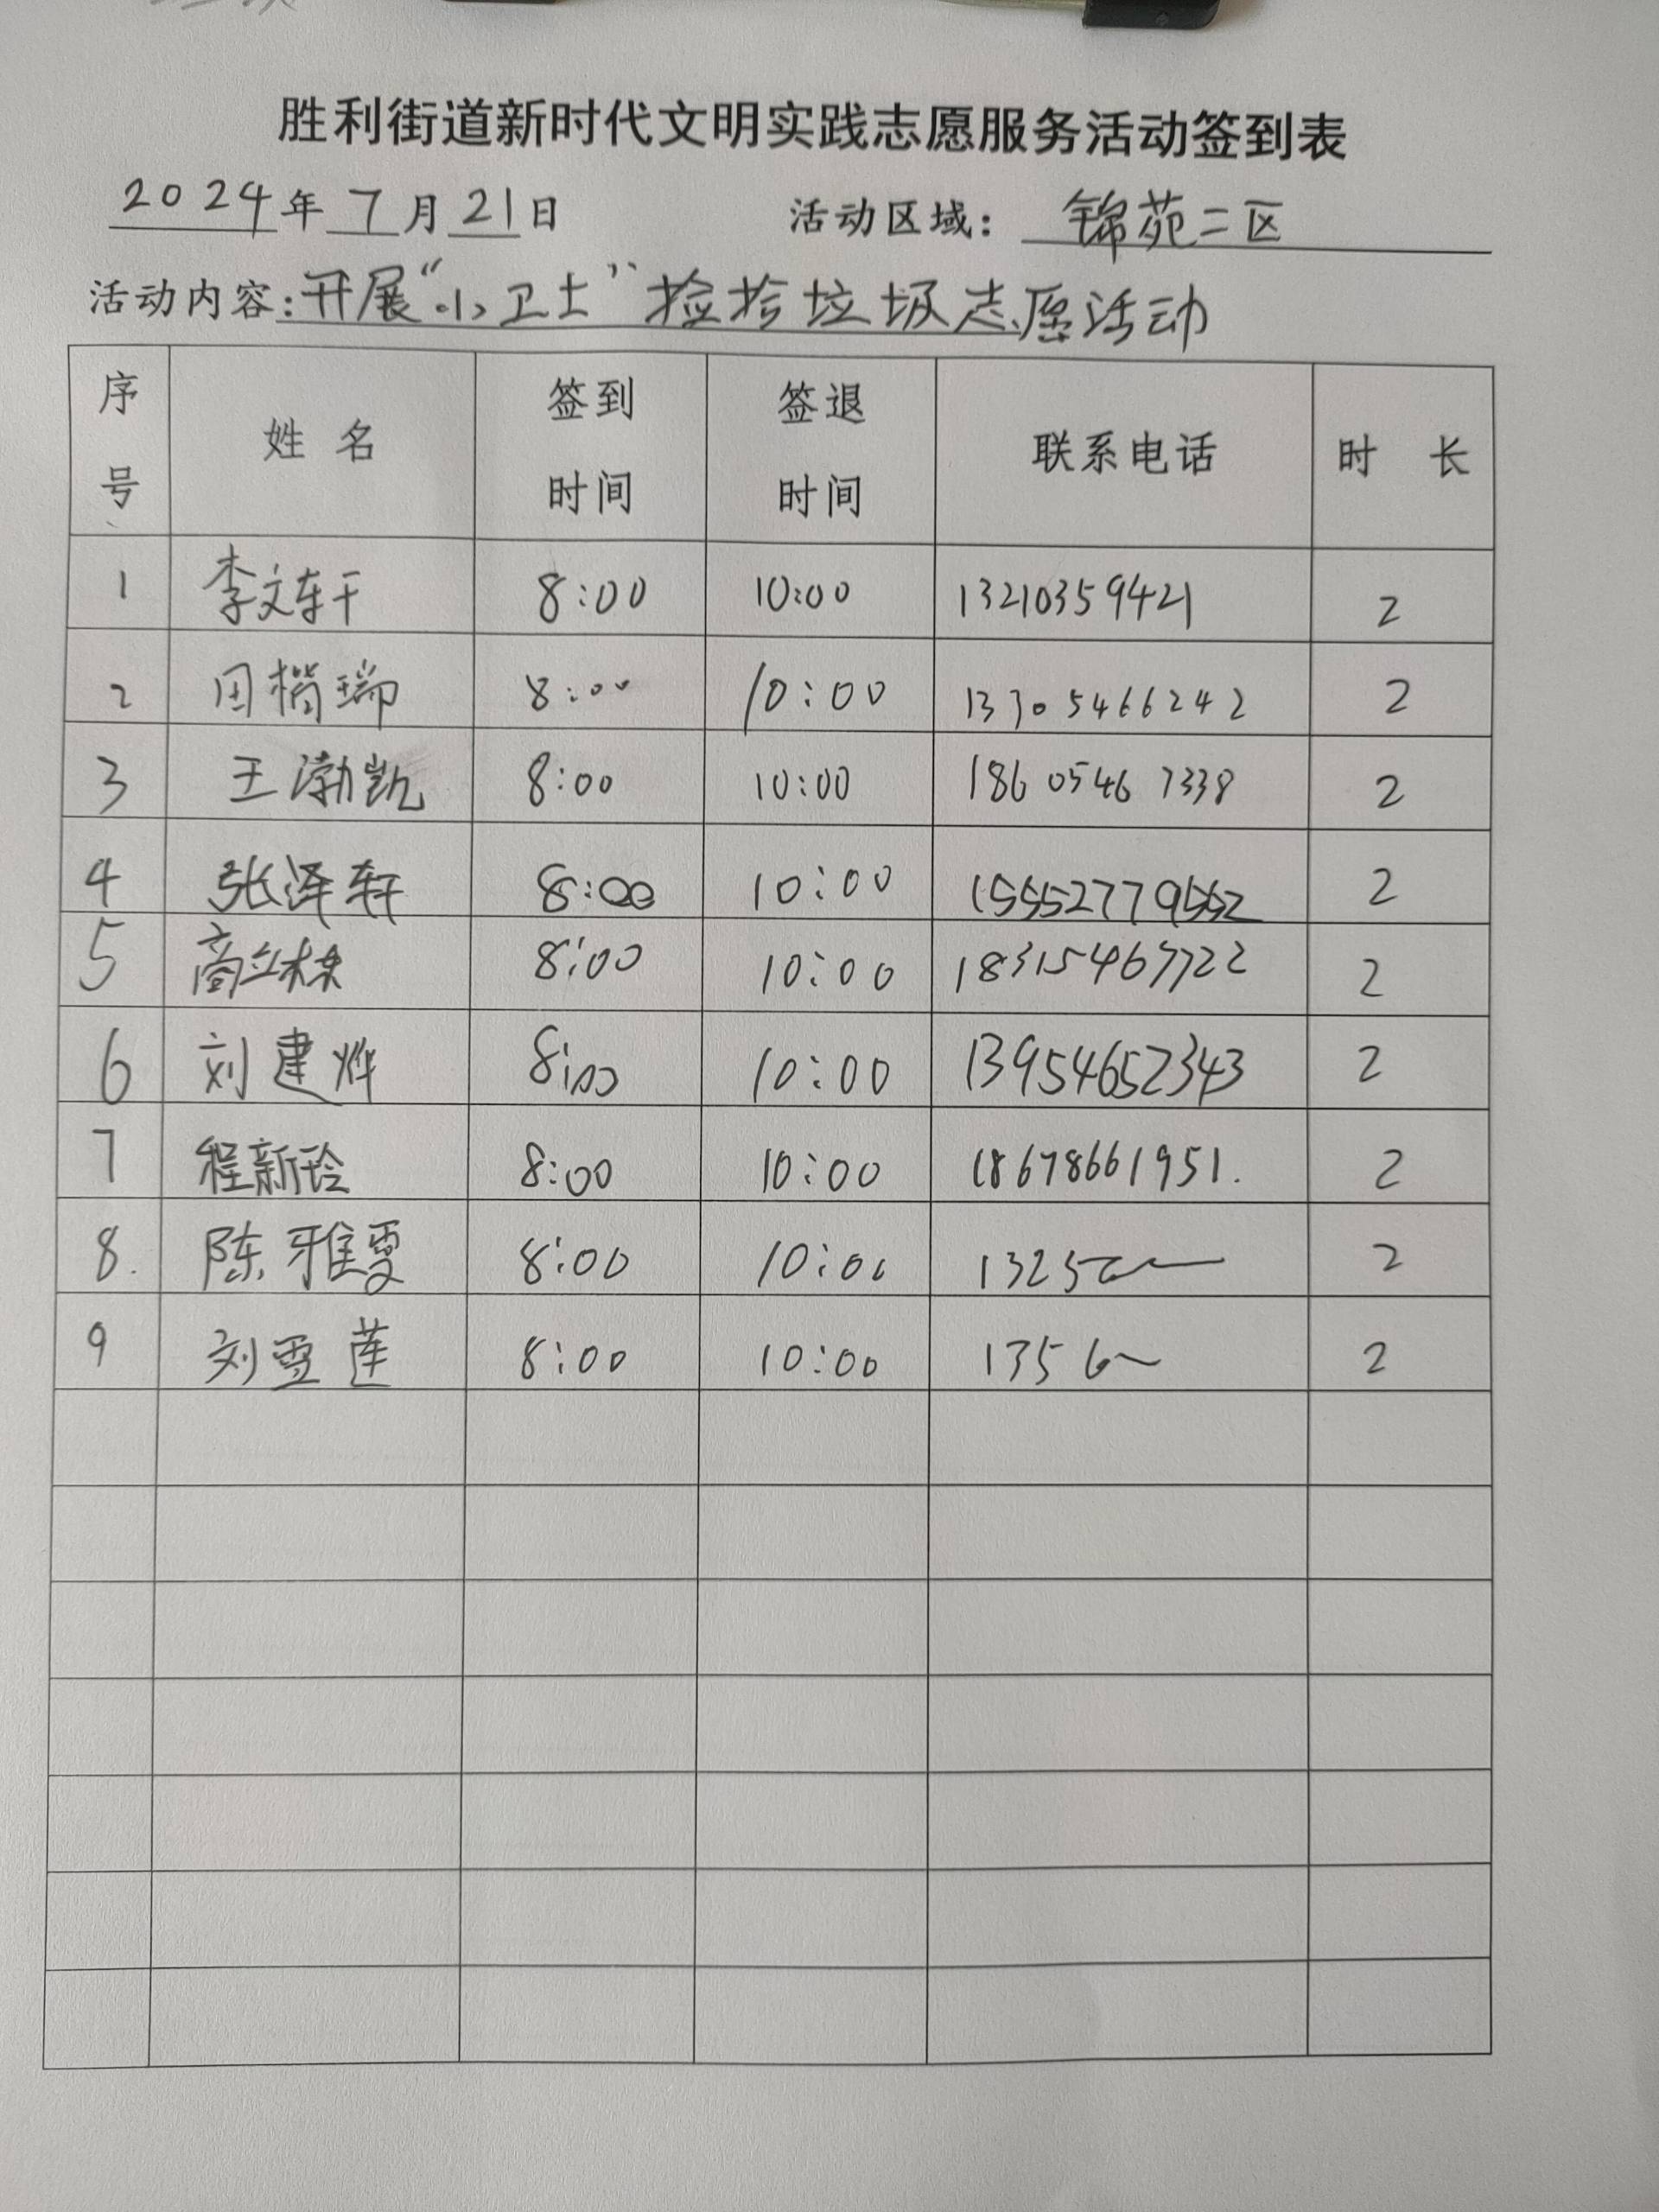 胜利街道新时代文明实践志愿服务活动签到表
2024年7月21日 活动区域：锦苑二区
活动内容：开展“小卫士”捡拾垃圾志愿活动
序号 姓名 签到时间 签退时间 联系电话 时长
1 李文轩 8:00 10:00 13210359421 2
2 田楷瑞 8:00 10:00 13305466242 2
3 王渤凯 8:00 10:00 18605467338 2
4 张泽轩 8:00 10:00 15552779552 2
5 8:00 10:00 18315467722 2
6 刘建烨 8:00 10:00 13954652343 2
7 程新玲 8:00 10:00 18678661951. 2
8. 陈雅雯 8:00 10:00 1325 2
9 刘雪莲 8:00 10:00 1356 2